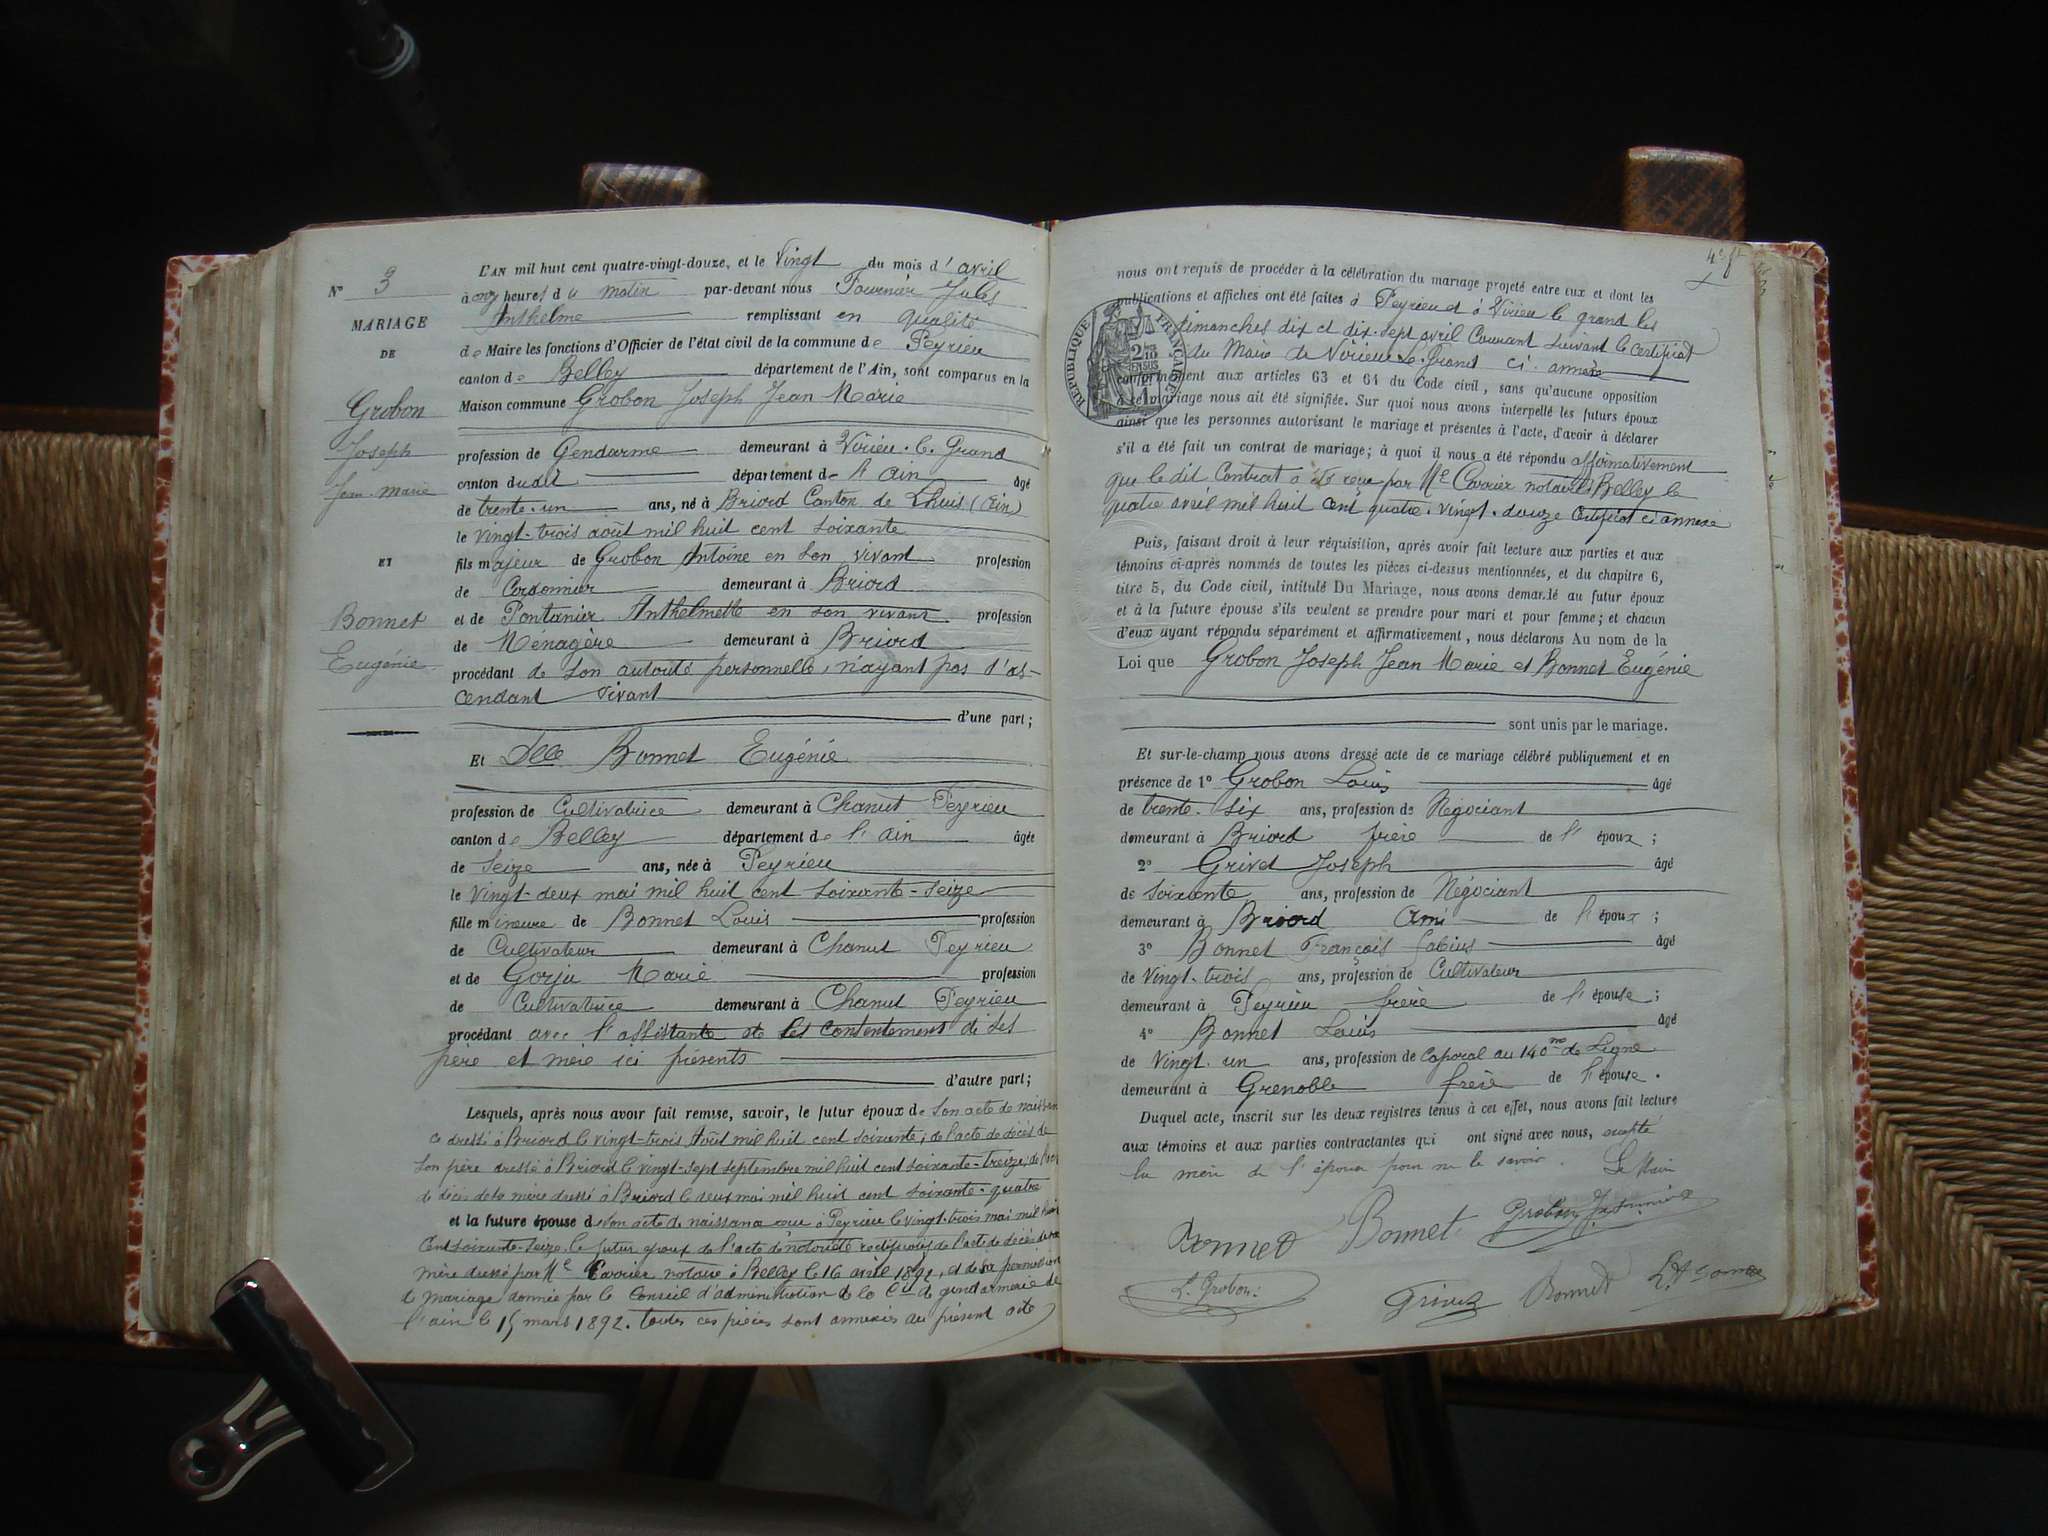 N° 3
MARIAGE
DE
Grobon
Joseph
Jean-Marie
ET
Bonnet
Eugénie
L'AN mil huit cent quatre-vingt-douze, et le Vingt du mois d'avril
à onze heures du matin par-devant nous Fournier Jules
Anthelme remplissant en qualité
de Maire les fonctions d'Officier de l'état civil de la commune de Peyrieu
canton de Belley département de l'Ain, sont comparus en la
Maison commune Grobon Joseph Jean Marie
profession de Gendarme demeurant à Virieu-le-Grand
canton dudit département de l'Ain âgé
de trente-un ans, né à Briord Canton de Lhuis (Ain)
le vingt-trois août mil huit cent soixante
fils majeur de Grobon Antoine en son vivant profession
de Cordonnier demeurant à Briord
et de Pontanier Anthelmette en son vivant profession
de Ménagère demeurant à Briord
procédant de son autorité personnelle, n'ayant pas d'as-
cendant vivant
d'une part;
Et Delle Bonnet Eugénie
profession de Cultivatrice demeurant à Chanut Peyrieu
canton de Belley département de l'ain âgée
de Seize ans, née à Peyrieu
le vingt-deux mai mil huit cent soixante-seize
fille mineure de Bonnet Louis profession
de Cultivateur demeurant à Chanut Peyrieu
et de Gorju Marie profession
de Cultivatrice demeurant à Chanut Peyrieu
procédant avec l'assistante et les consentement de ses
père et mère ici présents
d'autre part;
Lesquels, après nous avoir fait remise, savoir, le futur époux de son acte de naissan
ce dressé à Briord le vingt-trois Août mil huit cent soixante; de l'acte de décès de
son père dressé à Briord le vingt-sept septembre mil huit cent soixante-treize; de l'acte
de décès de sa mère dressé à Briord le deux mai mil huit cent soixante-quatre
et la future épouse de son acte de naissance reçu à Peyrieu le vingt-trois mai mil huit
cent soixante-seize. le futur époux de l'acte de notoriété rectificatif de l'acte de décès de sa
mère dressé par Me Carrier notaire à Belley le 16 avril 1892, et de sa permission
de mariage donnée par le Conseil d'administration de la Cie de gendarmerie de
l'ain le 15 mars 1892. toutes ces pièces sont annexées au présent acte
nous ont requis de procéder à la célébration du mariage projeté entre eux et dont les
publications et affiches ont été faites à Peyrieu et à Virieu le grand les
dimanches dix et dix-sept avril Courant suivant le certificat
du Maire de Virieu-Le-Grand ci-annexé
RÉPUBLIQUE FRANÇAISE
conformément aux articles 63 et 64 du Code civil, sans qu'aucune opposition
à ce mariage nous ait été signifiée. Sur quoi nous avons interpellé les futurs époux
ainsi que les personnes autorisant le mariage et présentes à l'acte, d'avoir à déclarer
s'il a été fait un contrat de mariage; à quoi il nous a été répondu affirmativement
que le dit Contrat a été reçu par Me Carrier notaire à Belley le
quatre avril mil huit cent quatre-vingt-douze Certificat ci annexé
Puis, faisant droit à leur réquisition, après avoir fait lecture aux parties et aux
témoins ci-après nommés de toutes les pièces ci-dessus mentionnées, et du chapitre 6,
titre 5, du Code civil, intitulé Du Mariage, nous avons demandé au futur époux
et à la future épouse s'ils veulent se prendre pour mari et pour femme; et chacun
d'eux ayant répondu séparément et affirmativement, nous déclarons Au nom de la
Loi que Grobon Joseph Jean Marie et Bonnet Eugénie
sont unis par le mariage.
Et sur-le-champ nous avons dressé acte de ce mariage célébré publiquement et en
présence de 1° Grobon Louis âgé
de trente-six ans, profession de Négociant
demeurant à Briord frère de l'époux;
2° Grivet Joseph âgé
de soixante ans, profession de Négociant
demeurant à Briord Ami de l'époux;
3° Bonnet François Fabius âgé
de vingt-trois ans, profession de Cultivateur
demeurant à Peyrieu frère de l'épouse;
4° Bonnet Louis âgé
de vingt-un ans, profession de Caporal au 140me de Ligne
demeurant à Grenoble frère de l'épouse.
Duquel acte, inscrit sur les deux registres tenus à cet effet, nous avons fait lecture
aux témoins et aux parties contractantes qui ont signé avec nous, excepté
la mère de l'épouse pour ne le savoir. Le Maire
Bonnet Bonnet Grobon J. Fournier
L. Grobon Grivet Bonnet